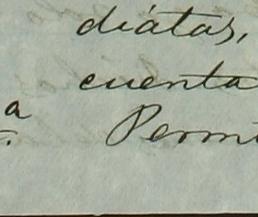 diátas,
cuenta
a Permi